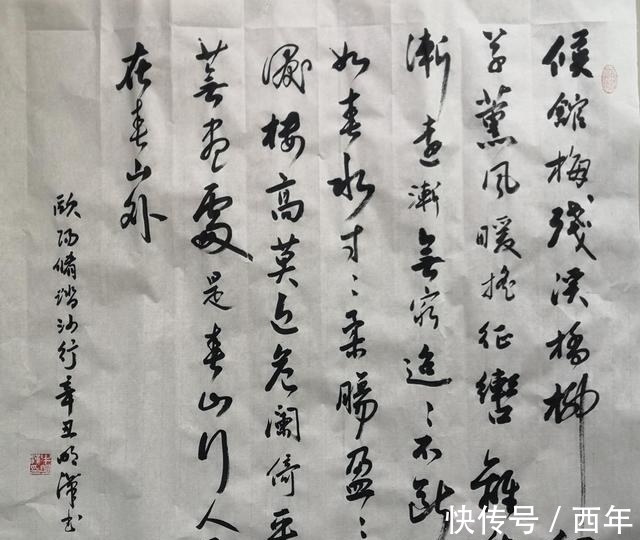 候館梅殘溪橋柳
草薰風暖搖征轡離
漸遠漸無窮迢〻不斷
如春水寸〻柔腸盈〻
淚樓高莫近危闌倚平
蕪盡處是春山行人
在春山外
歐陽脩踏沙行辛丑明漢书
快传号 / 西年